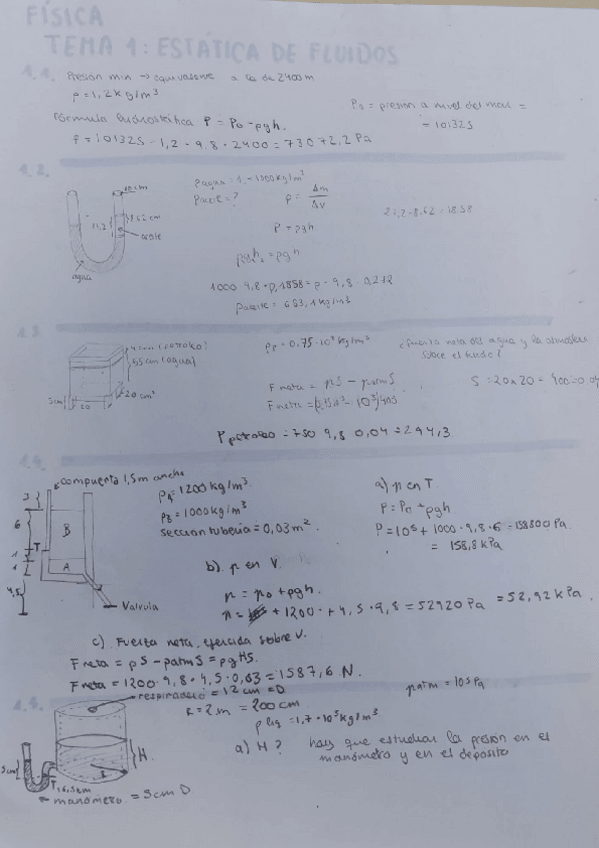 FÍSICA
TEMA 1: ESTÁTICA DE FLUIDOS
1.1. Presión min → equivalente a la de 2400 m
ρ = 1,2 kg/m³
P₀ = presión a nivel del mar =
= 101325
Fórmula hidrostática P = P₀ - ρgh.
P = 101325 - 1,2 · 9,8 · 2400 = 73072,2 Pa
1.2.
ρagua = 1000 kg/m³
= ?
ρ = Δm/ΔV
27,2 - 8,62 = 18,58
8,62 cm
aceite
agua
P = ρgh
ρgh = ρgh
1000 · 9,8 · 0,1858 = ρ · 9,8 · 0,272
ρaceite = 683,1 kg/m³
1.3
4 cm (petroleo)
55 cm (agua)
5cm
20
20 cm²
ρp = 0,75 · 10³ kg/m³
¿Fuerza neta del agua y la atmosfera
sobre el fondo?
F neta = pS - patmS
S = 20 x 20 = 400 = 0,04
F neta =
P petroleo = 750 · 9,8 · 0,04 = 294,3
1.4.
compuerta 1,5 m ancho
2
6
T
1
1
4,5
B
A
Valvula
ρA = 1200 kg/m³
ρB = 1000 kg/m³
sección tubería = 0,03 m².
a) p en T
P = P₀ + ρgh
P = 10⁵ + 1000 · 9,8 · 6 = 158800 Pa
= 158,8 kPa
b). p en V.
p = p₀ + ρgh.
p = + 1200 · + 4,5 · 9,8 = 52920 Pa = 52,92 kPa.
c). Fuerza neta, ejercida sobre V.
F neta = pS - patmS = ρgHS.
F neta = 1200 · 9,8 · 4,5 · 0,03 = 1587,6 N.
1.5.
respiradero = 12 cm = D
R = 2 m = 200 cm
patm = 10⁵ Pa
ρ liq = 1,7 · 10³ kg/m³
a) H? hay que estudiar la presión en el
manómetro y en el depósito
H
R
5cm
16,5cm
manómetro = 5cm D